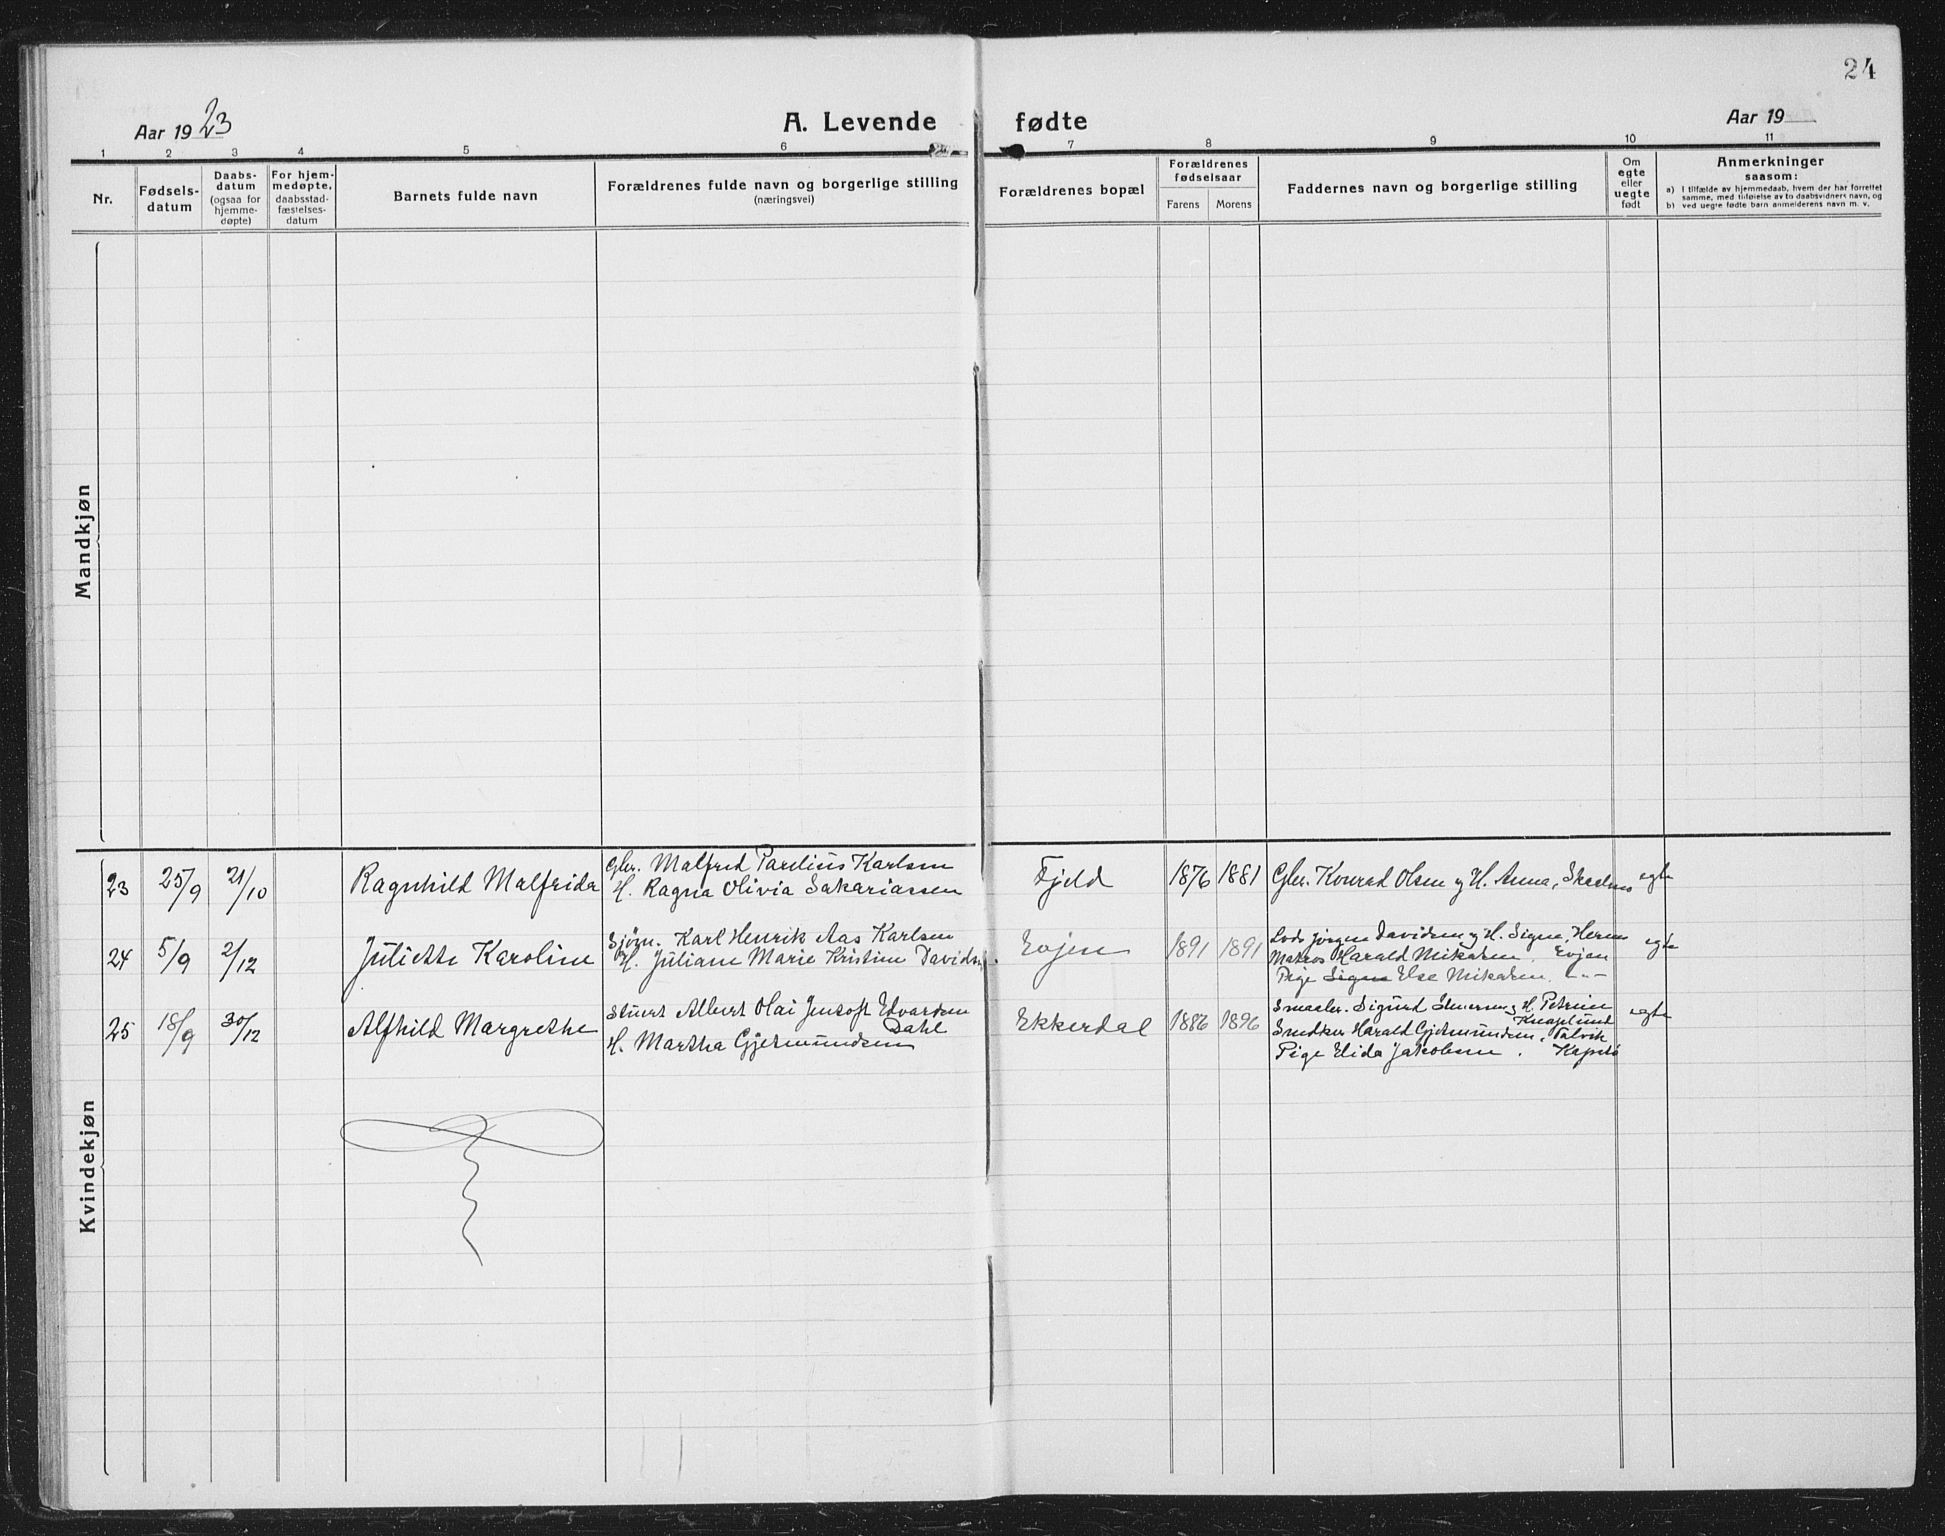 24
Aar 1923
A. Levende fødte
Aar 19
1 2 3 4 5 6 7 8 9 10 11
Nr.
Fødsels-
datum
Daabs-
datum
(ogsaa for
hjemme-
døpte)
For hjem-
medøpte,
daabsstad-
fæstelses-
datum
Barnets fulde navn
Forældrenes fulde navn og borgerlige stilling
(næringsvei)
Forældrenes bopæl
Forældrenes
fødselsaar
Farens Morens
Faddernes navn og borgerlige stilling
Om
egte
eller
uegte
født
Anmerkninger
saasom:
a) I tilfælde av hjemmedaab, hvem der har forrettet
samme, med tilføielse av to daabsvidners navn, og
b) ved uegte fødte barn anmelderens navn m. v.
Mandkjøn
Kvindekjøn
23 25/9 21/10 Ragnhild Malfrida
Gbr. Malfred Parelius Karlsen
H. Ragna Olivia Sakariassen
Fjeld 1876 1881
Gbr. Konrad Olsen og H. Anna, egte
24 5/9 2/12 Juliette Karoline
Sjøm. Karl Henrik Aas Karlsen
H. Juliane Marie Kristine Davids.
Evjen 1891 1891
Lods Jørgen Davidsen og H. Signe, egte
Matros Harald Mikalsen, Evjen
Pige Signe Else Mikalsen. -"-
25 18/9 30/12 Alfhild Margrethe
Stuert Albert Olai Jentoft Edvardsen
Dahl
H. Martha Gjetmundsen
Ekkerdal 1886 1896
Sigurd H. Petrine egte
Knaplund
Snedker Harald Gjetmundsen, Talvik
Pige Elida Jakobsen.